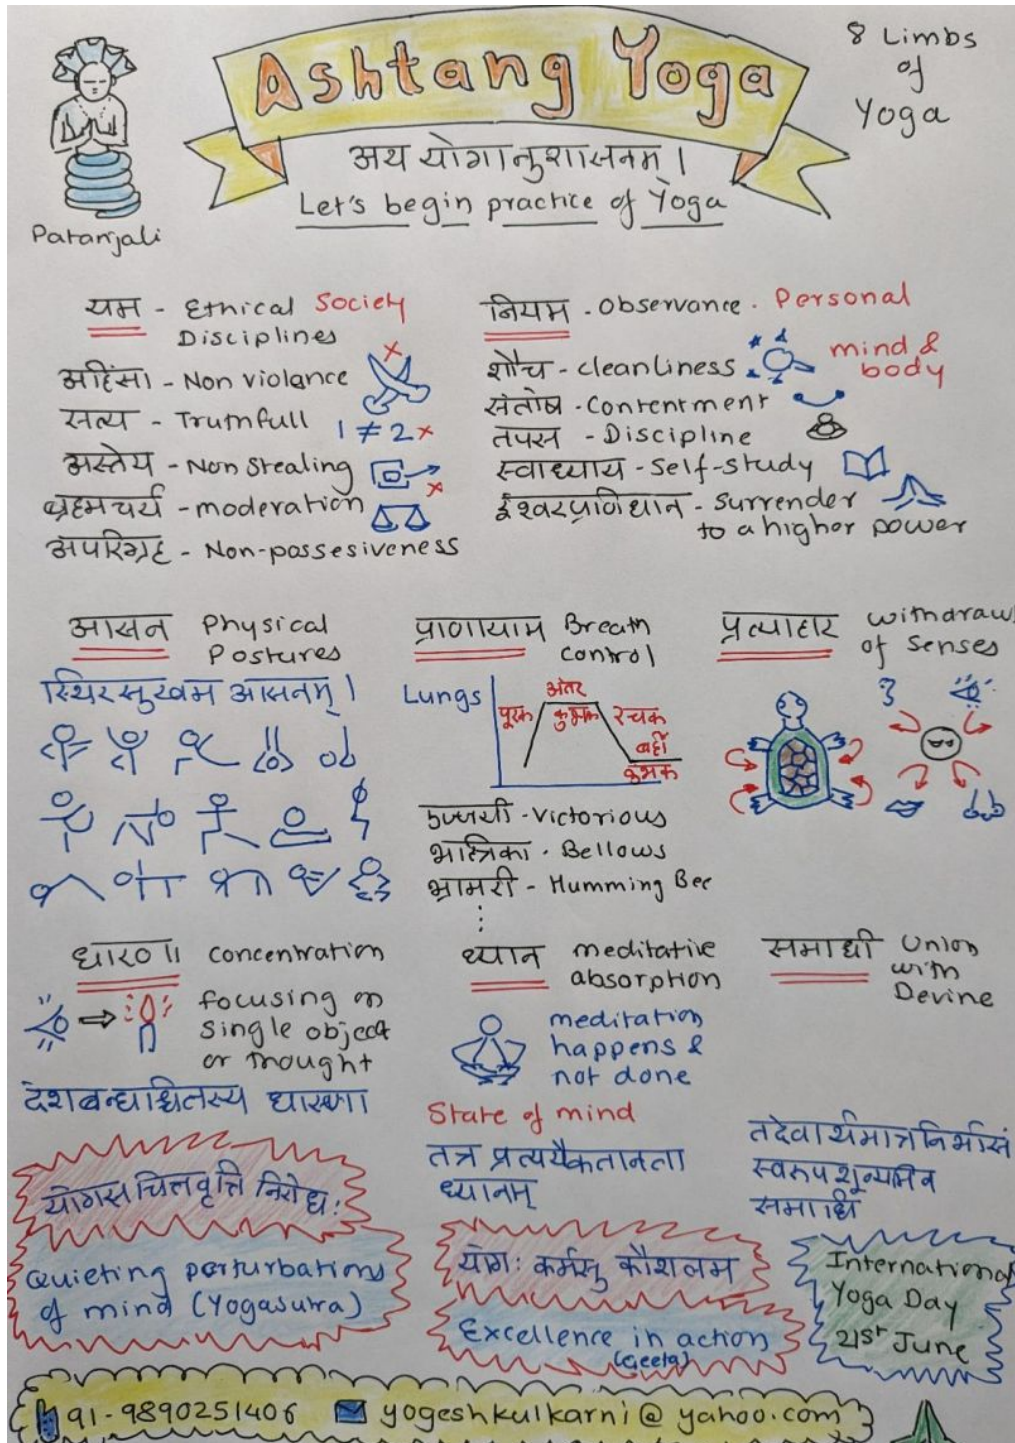 Ashtang Yoga
8 Limbs
of
Yoga
अथ योगानुशासनम् ।
Let's begin practice of Yoga
Patanjali
यम - Ethical Society
Disciplines
अहिंसा - Non violance
सत्य - Truthfull
1 ≠ 2 x
अस्तेय - Non Stealing
ब्रह्मचर्य - moderation
अपरिग्रह - Non-possesiveness
नियम - Observance - Personal
mind &
body
शौच - cleanliness
संतोष - Contentment
तपस - Discipline
स्वाध्याय - Self-study
ईश्वरप्रणिधान - Surrender
to a higher power
आसन Physical
Postures
स्थिरसुखम आसनम् ।
प्राणायाम Breath
control
Lungs
अंतर
पूरक कुंभक रेचक
बही
कुंभक
उज्जयी - Victorious
भास्त्रिका - Bellows
भ्रामरी - Humming Bee
प्रत्याहार withdraw
of senses
धारणा concentration
focusing on
single object
or thought
देशबन्धश्चित्तस्य धारणा
ध्यान meditative
absorption
meditation
happens &
not done
State of mind
तत्र प्रत्ययैकतानता
ध्यानम्
समाधी Union
with
Devine
तदेवार्थमात्रनिर्भासं
स्वरुपशून्यमिव
समाधि
योगस चित्तवृत्ति निरोध:
Quieting perturbations
of mind (Yogasutra)
योग: कर्मसु कौशलम
Excellence in action
(Geeta)
International
Yoga Day
21st June
91-9890251406 yogeshkulkarni@yahoo.com